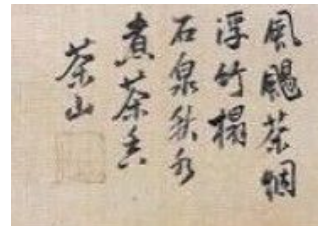 風颺茶烟
浮竹榻
石泉秋水
煮茶香
茶山